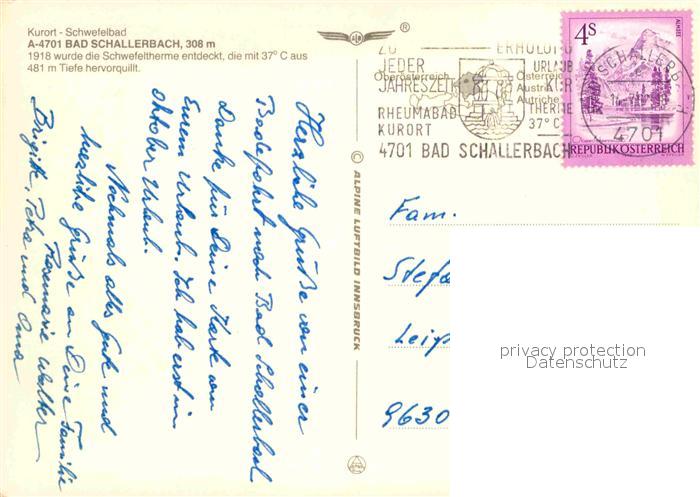 Kurort - Schwefelbad
A-4701 BAD SCHALLERBACH, 308 m
1918 wurde die Schwefeltherme entdeckt, die mit 37° C aus
481 m Tiefe hervorquillt.
®
Oberösterreich
Österreich
Austria
Autriche
ZU
JEDER
JAHRESZEIT
RHEUMABAD
KURORT
4701 BAD SCHALLERBACH
ERHOLUNG
URLAUB
KUR
THERME
37° C
4S
ALMSEE
SCHALLERB
4701
REPUBLIK ÖSTERREICH
© ALPINE LUFTBILD INNSBRUCK
Herzliche Grüße von einer
Badefahrt nach Bad Schallerbach
Danke für Deine Karte von
Eurem Urlaub. Ich hab erst im
Oktober Urlaub.
Nochmals alles Gute und
herzliche Grüße an Deine Familie
Rosemarie Walter
Brigitte, Petra und Oma
Fam.
Stefa
Leip
9630
privacy protection
Datenschutz